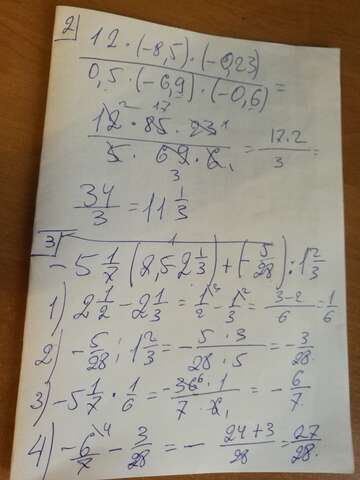 2)
12 · (-8,5) · (-0,23)
0,5 · (-6,9) · (-0,6) =
12 · 85 · 23 / 5 · 69 · 6 = 17·2 / 3 =
34/3 = 11 1/3
3)
-5 1/7 (2,5 2 1/3) + (- 5/28) : 1 2/3
1) 2 1/2 - 2 1/3 = 1/2 - 1/3 = 3-2 / 6 = 1/6
2) - 5/28 : 1 2/3 = - 5 · 3 / 28 · 5 = - 3/28
3) -5 1/7 · 1/6 = -36 · 1 / 7 · 6 = - 6/7
4) - 6/7 - 3/28 = - 24+3 / 28 = 27/28